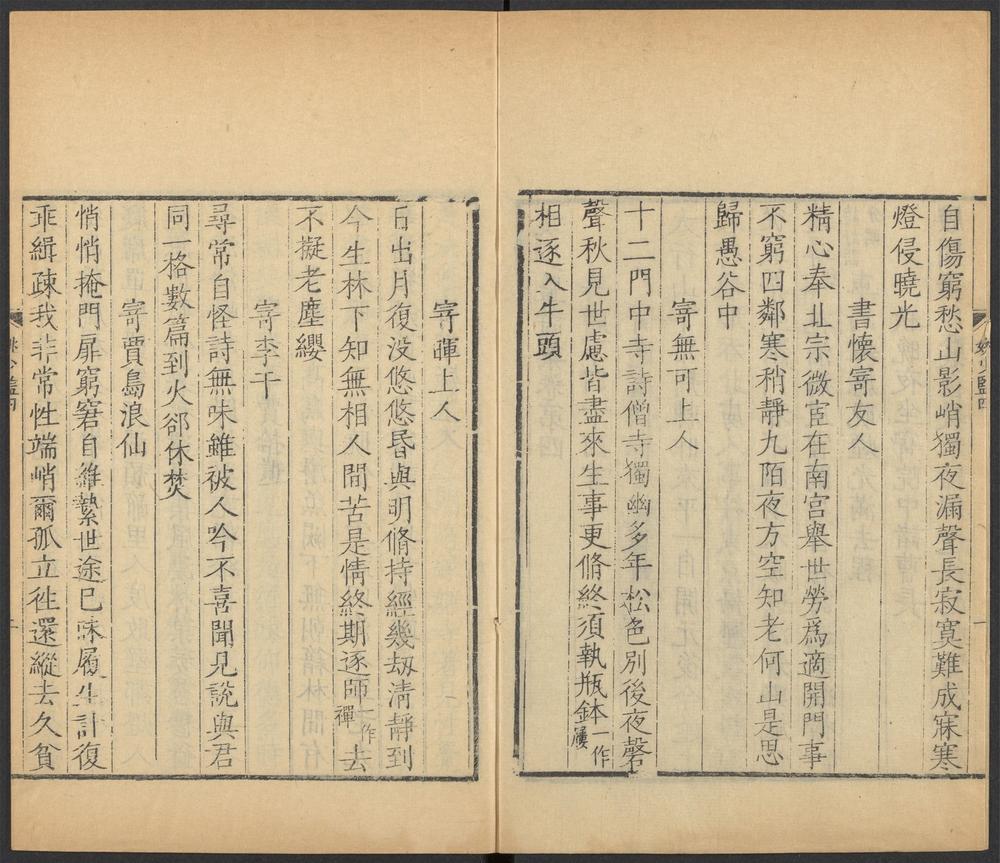 自傷窮愁山影峭獨夜漏聲長寂寞難成寐寒
燈侵曉光
書懷寄友人
精心奉北宗微宦在南宮舉世勞爲適開門事
不窮四鄰寒稍靜九陌夜方空知老何山是思
歸愚谷中
寄無可上人
十二門中寺詩僧寺獨幽多年松色別後夜磬
聲秋見世慮皆盡來生事更脩終須執瓶鉢一作屨
相逐入牛頭
姚少監四
寄暉上人
日出月復没悠悠昏與明脩持經幾刼清靜到
今生林下知無相人間苦是情終期逐師一作禪去
不擬老塵纓
寄李干
尋常自怪詩無味雖被人吟不喜聞見說與君
同一格數篇到火郤休焚
寄賈島浪仙
悄悄掩門扉窮窘自維縶世途已昧履生計復
乖緝疎我非常性端峭爾孤立徃還縱去久貧